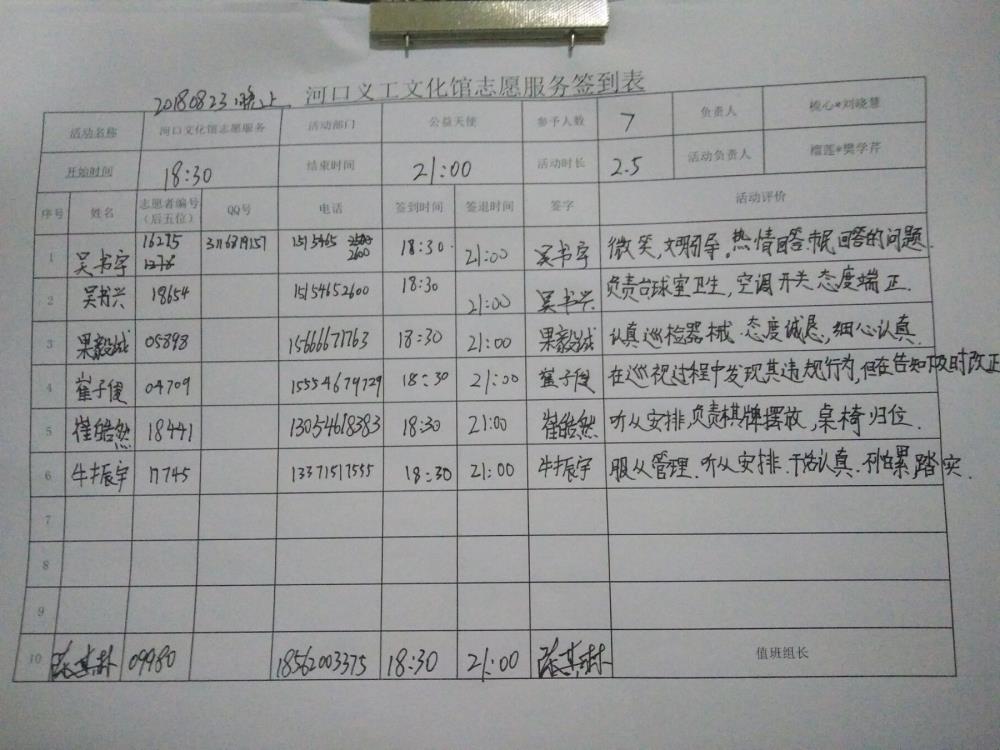 20180823晚上 河口义工文化馆志愿服务签到表
活动名称 河口文化馆志愿服务 活动部门 公益天使 参予人数 7 负责人 梳心*刘晓慧
开始时间 18:30 结束时间 21:00 活动时长 2.5 活动负责人 榴莲*樊学芹
序号 姓名 志愿者编号（后五位） QQ号 电话 签到时间 签退时间 签字 活动评价
1 吴书宇 16275 1278 3116819157 1515465 2600 18:30 21:00 吴书宇 微笑,文明引导,热情回答市民回答的问题.
2 吴书兴 18654 15154652600 18:30 21:00 吴书兴 负责台球室卫生,空调开关态度端正.
3 果毅诚 05898 15666671763 18:30 21:00 果毅诚 认真巡检器械.态度诚恳,细心认真.
4 崔子俊 04709 15554679729 18:30 21:00 崔子俊 在巡视过程中发现其违规行为,但在告知极时改正
5 崔皓然 18441 13054618383 18:30 21:00 崔皓然 听从安排,负责棋牌摆放,桌椅归位.
6 牛振宇 17745 13371517555 18:30 21:00 牛振宇 服从管理.听从安排.干活认真.不怕累踏实.
7
8
9
10 09980 18562003375 18:30 21:00 值班组长